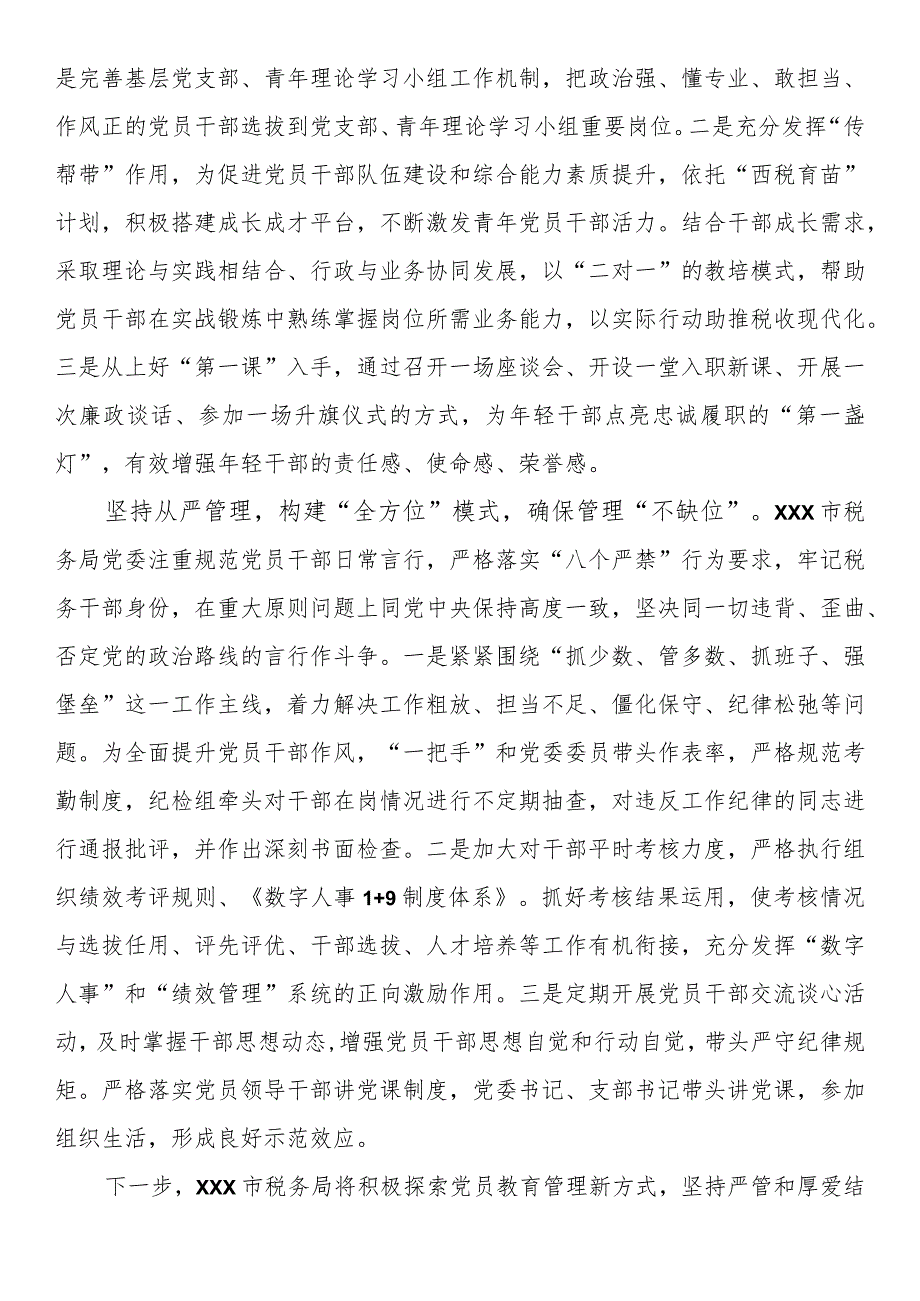 是完善基层党支部、青年理论学习小组工作机制，把政治强、懂专业、敢担当、
作风正的党员干部选拔到党支部、青年理论学习小组重要岗位。二是充分发挥“传
帮带”作用，为促进党员干部队伍建设和综合能力素质提升，依托“西税育苗”
计划，积极搭建成长成才平台，不断激发青年党员干部活力。结合干部成长需求，
采取理论与实践相结合、行政与业务协同发展，以“二对一”的教培模式，帮助
党员干部在实战锻炼中熟练掌握岗位所需业务能力，以实际行动助推税收现代化。
三是从上好“第一课”入手，通过召开一场座谈会、开设一堂入职新课、开展一
次廉政谈话、参加一场升旗仪式的方式，为年轻干部点亮忠诚履职的“第一盏
灯”，有效增强年轻干部的责任感、使命感、荣誉感。
坚持从严管理，构建“全方位”模式，确保管理“不缺位”。XXX市税
务局党委注重规范党员干部日常言行，严格落实“八个严禁”行为要求，牢记税
务干部身份，在重大原则问题上同党中央保持高度一致，坚决同一切违背、歪曲、
否定党的政治路线的言行作斗争。一是紧紧围绕“抓少数、管多数、抓班子、强
堡垒”这一工作主线，着力解决工作粗放、担当不足、僵化保守、纪律松弛等问
题。为全面提升党员干部作风，“一把手”和党委委员带头作表率，严格规范考
勤制度，纪检组牵头对干部在岗情况进行不定期抽查，对违反工作纪律的同志进
行通报批评，并作出深刻书面检查。二是加大对干部平时考核力度，严格执行组
织绩效考评规则、《数字人事1+9制度体系》。抓好考核结果运用，使考核情况
与选拔任用、评先评优、干部选拔、人才培养等工作有机衔接，充分发挥“数字
人事”和“绩效管理”系统的正向激励作用。三是定期开展党员干部交流谈心活
动，及时掌握干部思想动态,增强党员干部思想自觉和行动自觉，带头严守纪律规
矩。严格落实党员领导干部讲党课制度，党委书记、支部书记带头讲党课，参加
组织生活，形成良好示范效应。
下一步，XXX市税务局将积极探索党员教育管理新方式，坚持严管和厚爱结